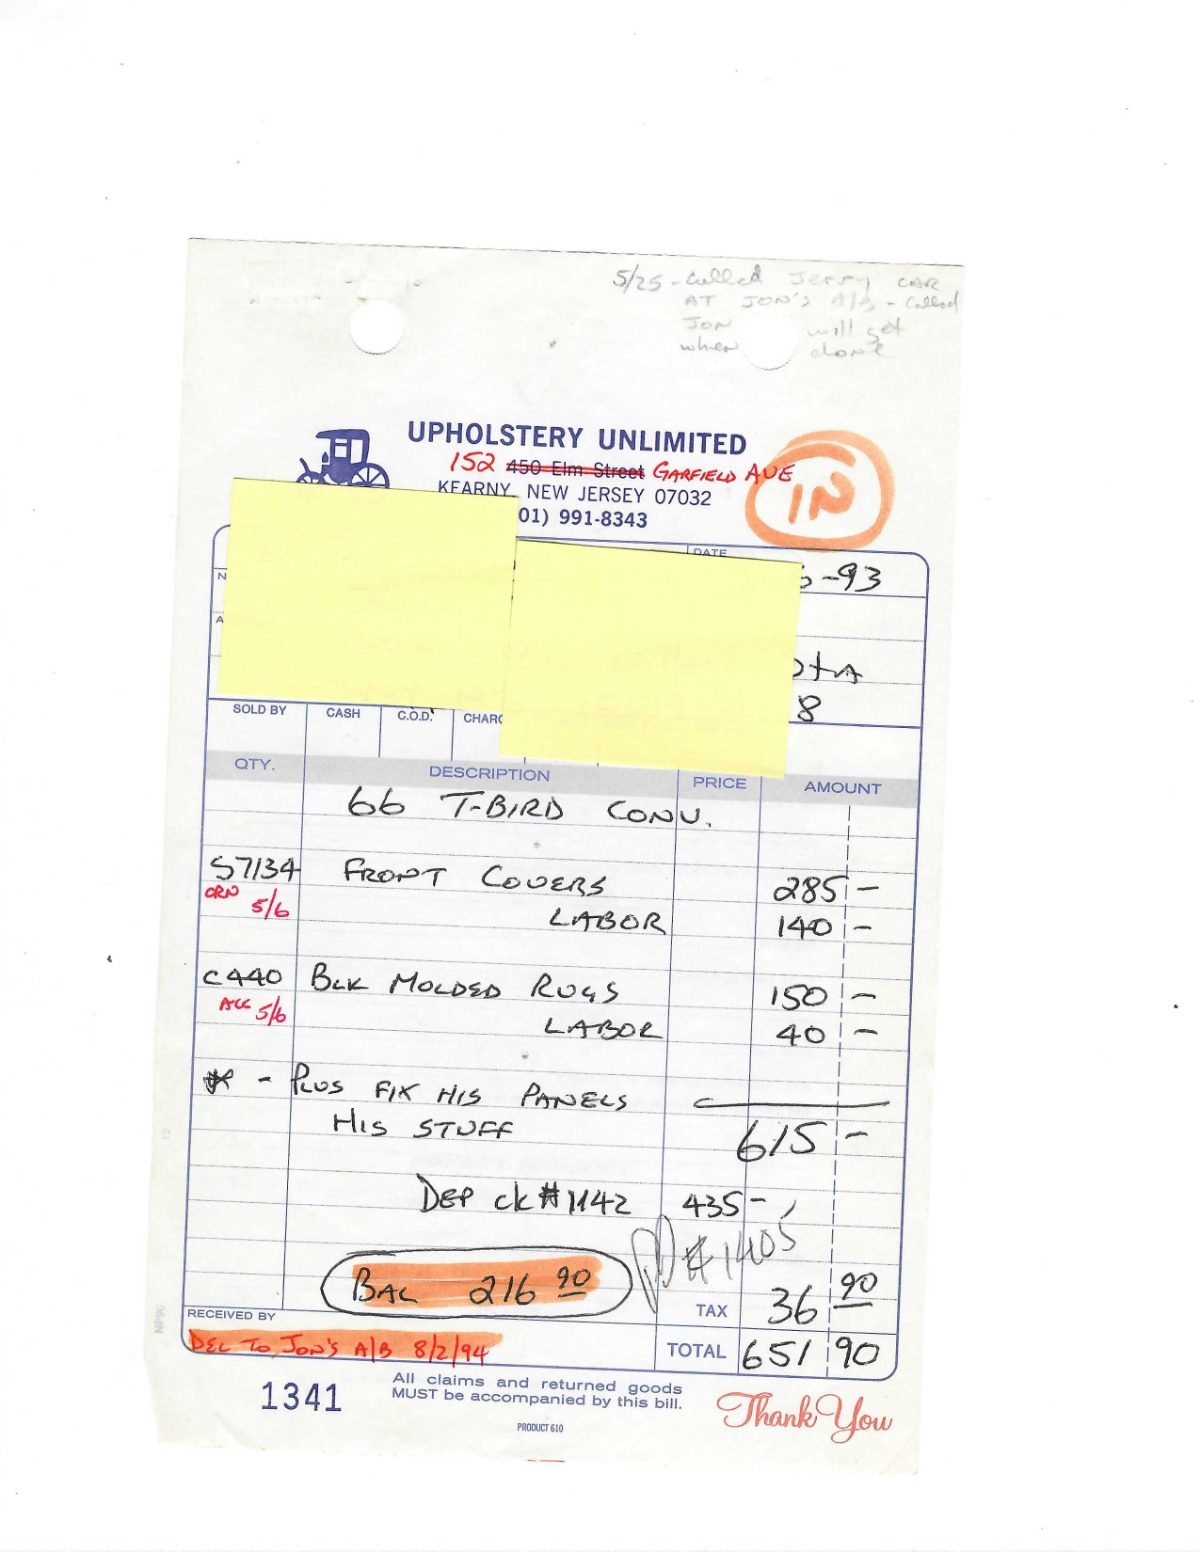 5/25 - Called Jerry CAR
AT JON'S A/B - Called
JON will get
when done
UPHOLSTERY UNLIMITED
152 450 Elm Street GARFIELD AVE
KEARNY, NEW JERSEY 07032
01) 991-8343
IN
DATE
-93
N
A
8
SOLD BY CASH C.O.D. CHARG
QTY. DESCRIPTION PRICE AMOUNT
66 T-BIRD CONV.
S7134 FRONT COVERS 285 -
ORN 5/6 LABOR 140 -
C440 BLK MOLDED RUGS 150 -
ACC 5/6 LABOR 40 -
* - PLUS FIX HIS PANELS
HIS STUFF 615 -
DEP CK#1142 435 -
#1405
BAL 216 90
TAX 36 90
RECEIVED BY
DEL TO JON'S A/B 8/2/94
TOTAL 651 90
1341
All claims and returned goods
MUST be accompanied by this bill.
Thank You
PRODUCT 610